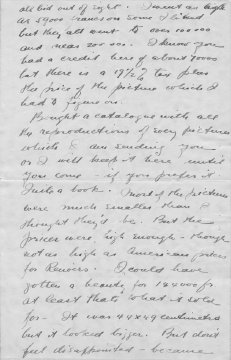 all bid out of sight. I went as high
as 59000 francs on some I liked
but they all went to over 100 000
and near 200 000. I know you
had a credit here of about 70000
but there is a 19½% tax plus
the price of the picture which I
had to figure on.
Bought a catalogue with all
the reproductions of every picture
which I am sending you
or I will keep it here until
you come - if you prefer it.
Such a book. Most of the pictures
were much smaller than I
thought they'd be. But the
prices were high enough - though
not as high as American prices
for Renoirs. I could have
gotten a beauty for 144000 frs
at least that's what it sold
for - It was 44 x 49 centimetres
but it looked bigger. But don't
feel disappointed - because